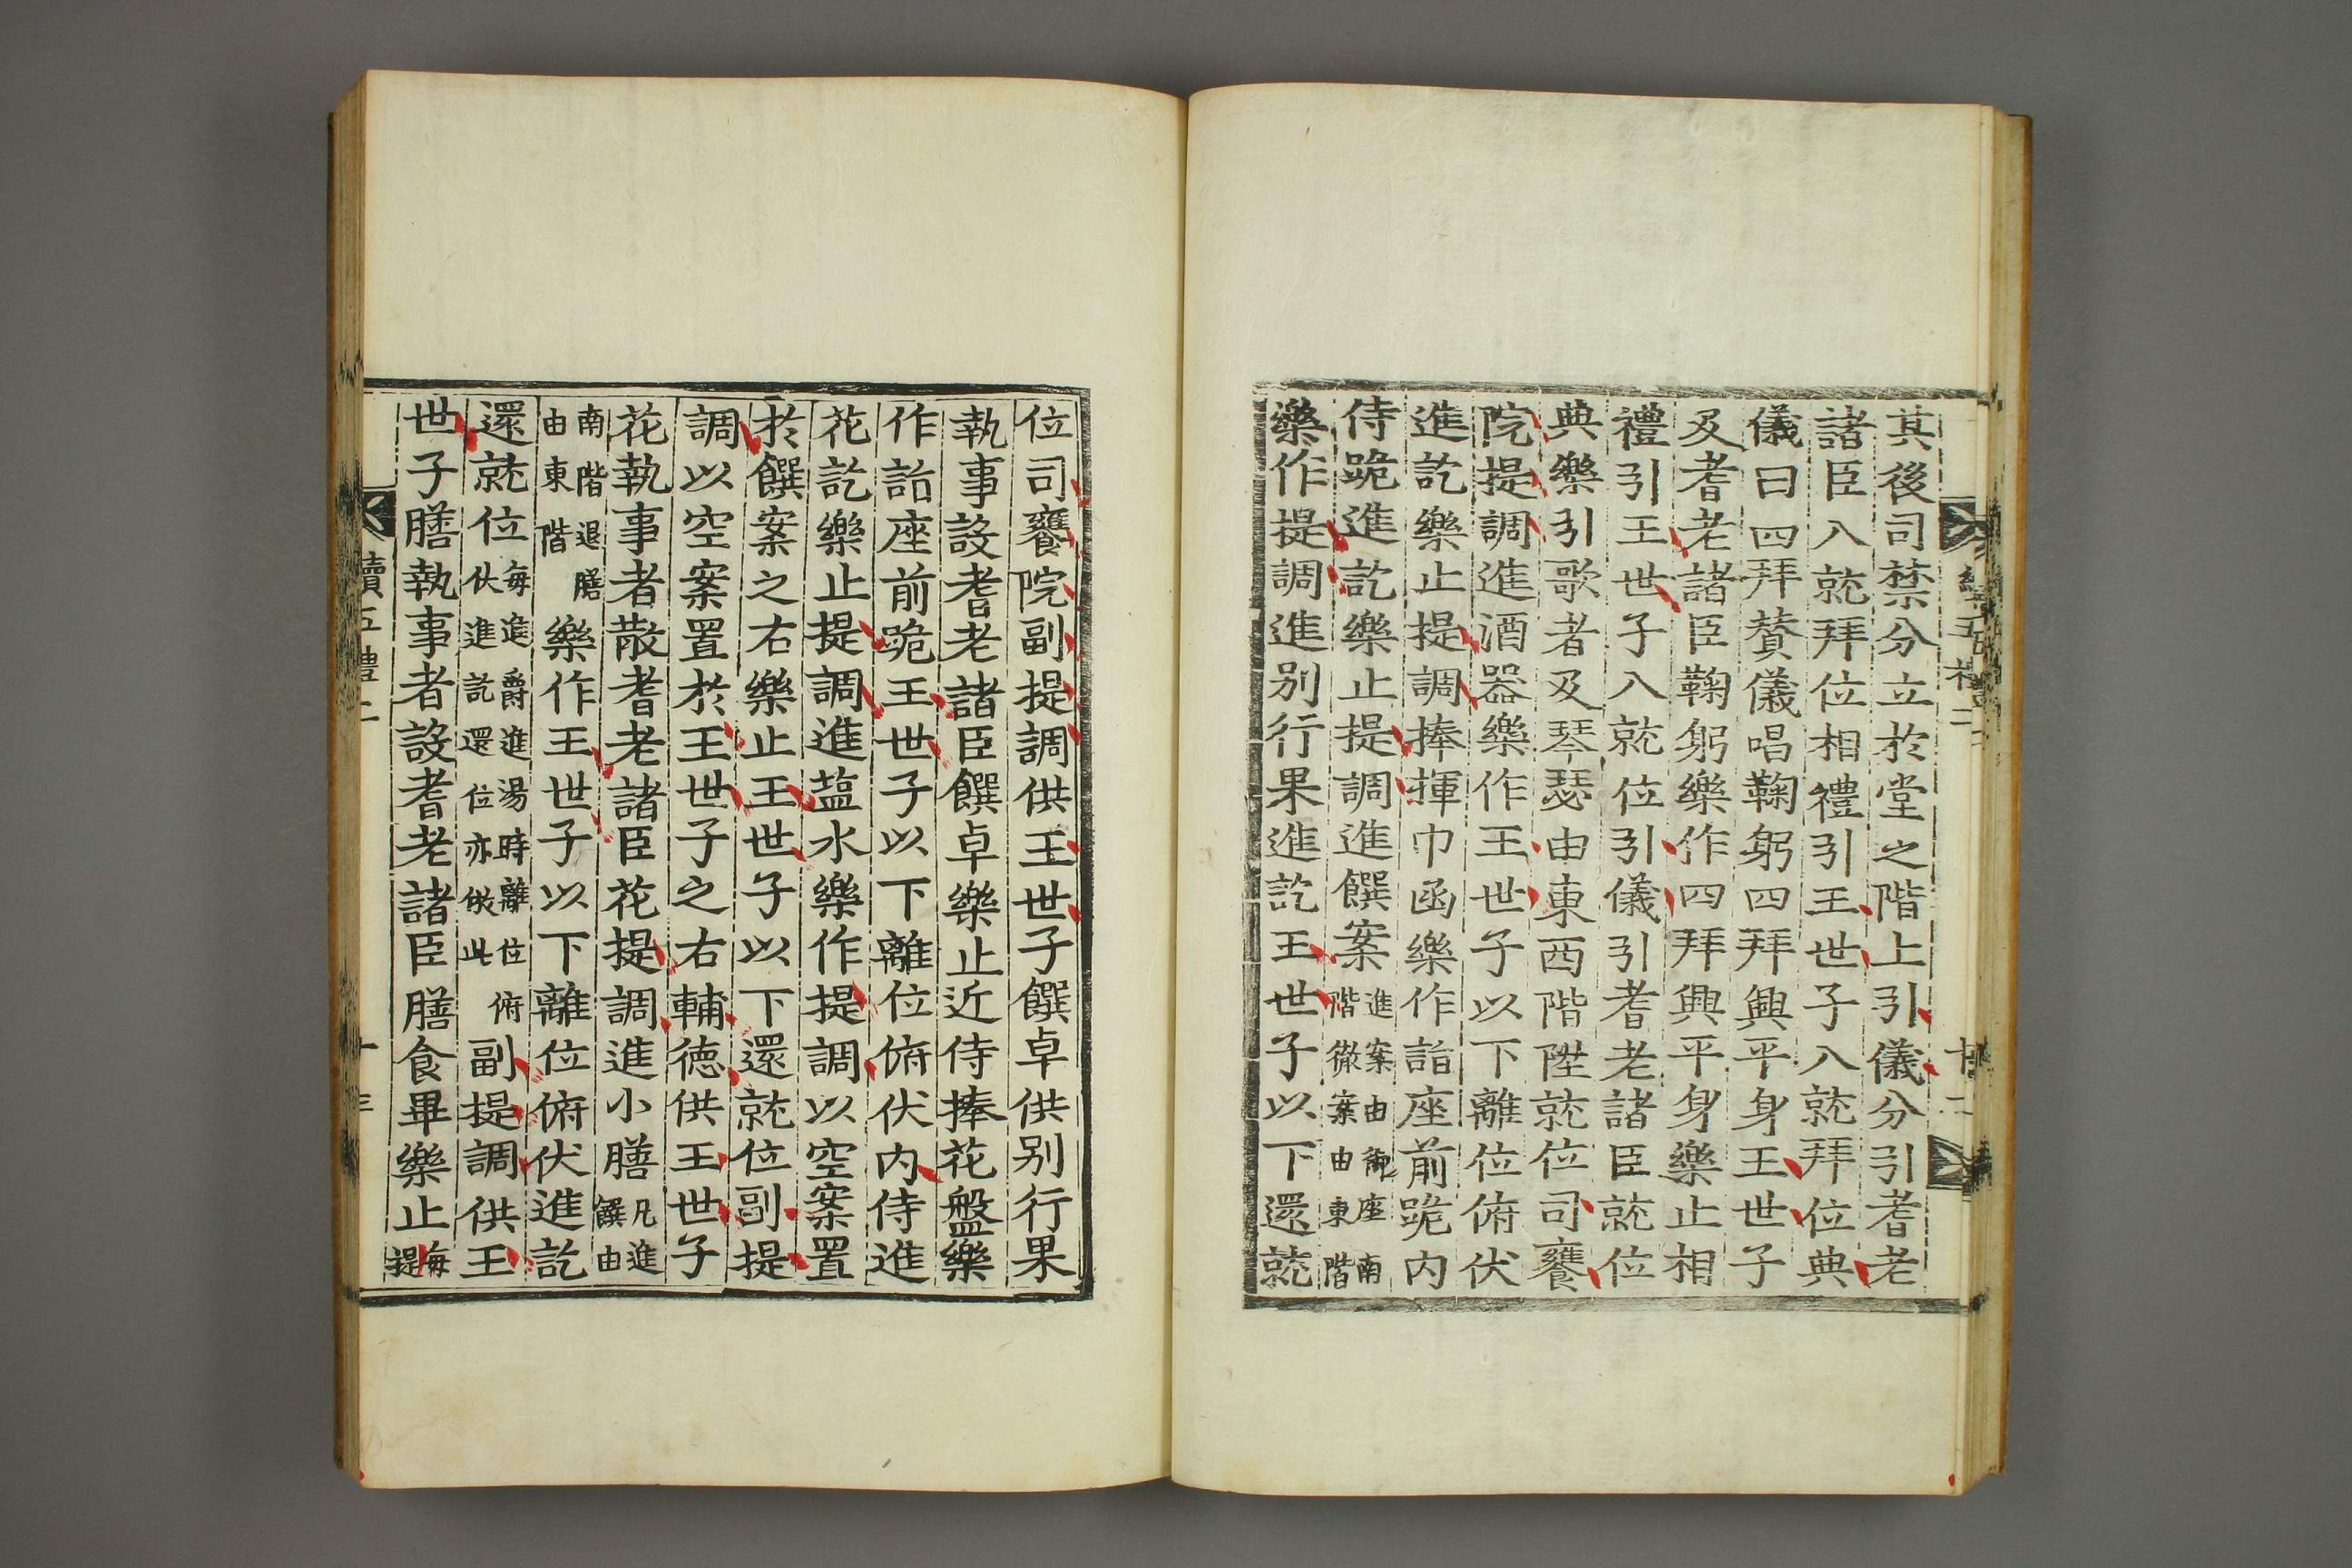 其後司禁分立於堂之階上引儀分引耆老
諸臣入就拜位相禮引王世子入就拜位典
儀曰四拜贊儀唱鞠躬四拜興平身王世子
及耆老諸臣鞠躬樂作四拜興平身樂止相
禮引王世子入就位引儀引耆老諸臣就位
典樂引歌者及琴瑟由東西階陞就位司饔
院提調進酒器樂作王世子以下離位俯伏
進訖樂止提調捧揮巾函樂作詣座前跪内
侍跪進訖樂止提調進饌案進案由御座南階徹案由東階
樂作提調進别行果進訖王世子以下還就
續五禮二
十二
位司饔院副提調供王世子饌卓供别行果
執事設耆老諸臣饌卓樂止近侍捧花盤樂
作詣座前跪王世子以下離位俯伏内侍進
花訖樂止提調進塩水樂作提調以空案置
於饌案之右樂止王世子以下還就位副提
調以空案置於王世子之右輔德供王世子
花執事者散耆老諸臣花提調進小膳凡進饌由
南階退膳由東階樂作王世子以下離位俯伏進訖
還就位每進爵進湯時離位俯伏進訖還位亦倣此副提調供王
世子膳執事者設耆老諸臣膳食畢樂止每提
續五禮二
十三